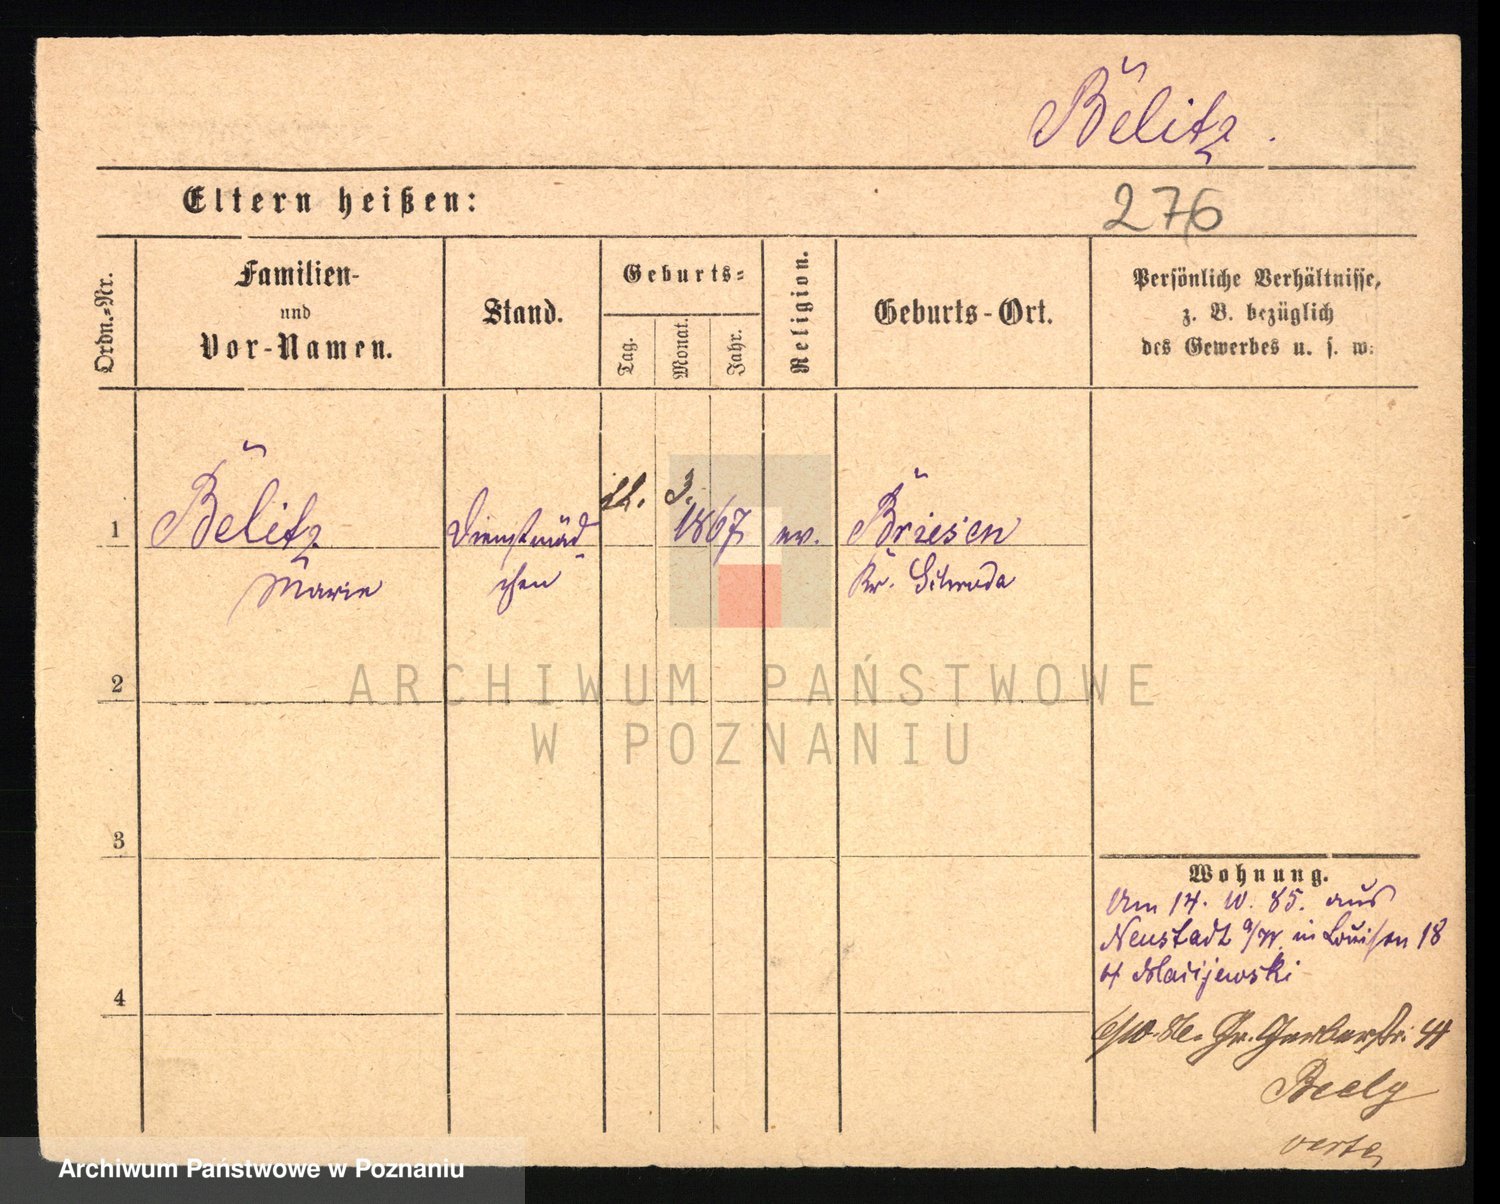 Bělitz.
Eltern heißen:
276
Ordn.-Nr.
Familien-
und
Vor-Namen.
Stand.
Geburts-
Tag.
Monat.
Jahr.
Religion.
Geburts-Ort.
Persönliche Verhältnisse,
z. B. bezüglich
des Gewerbes u. s. w.
1
Bělitz
Marie
Dienstmäd-
chen
3.
1867
ev.
Briesen
Kr. Schroda
2
3
4
ARCHIWUM PAŃSTWOWE
W POZNANIU
Wohnung.
Am 14. 10. 85. aus
Neustadt a/W. in Louisen 18
Macijewski
6/10. 86. Gr. Gerberstr. 44
Beely
verte
Archiwum Państwowe w Poznaniu